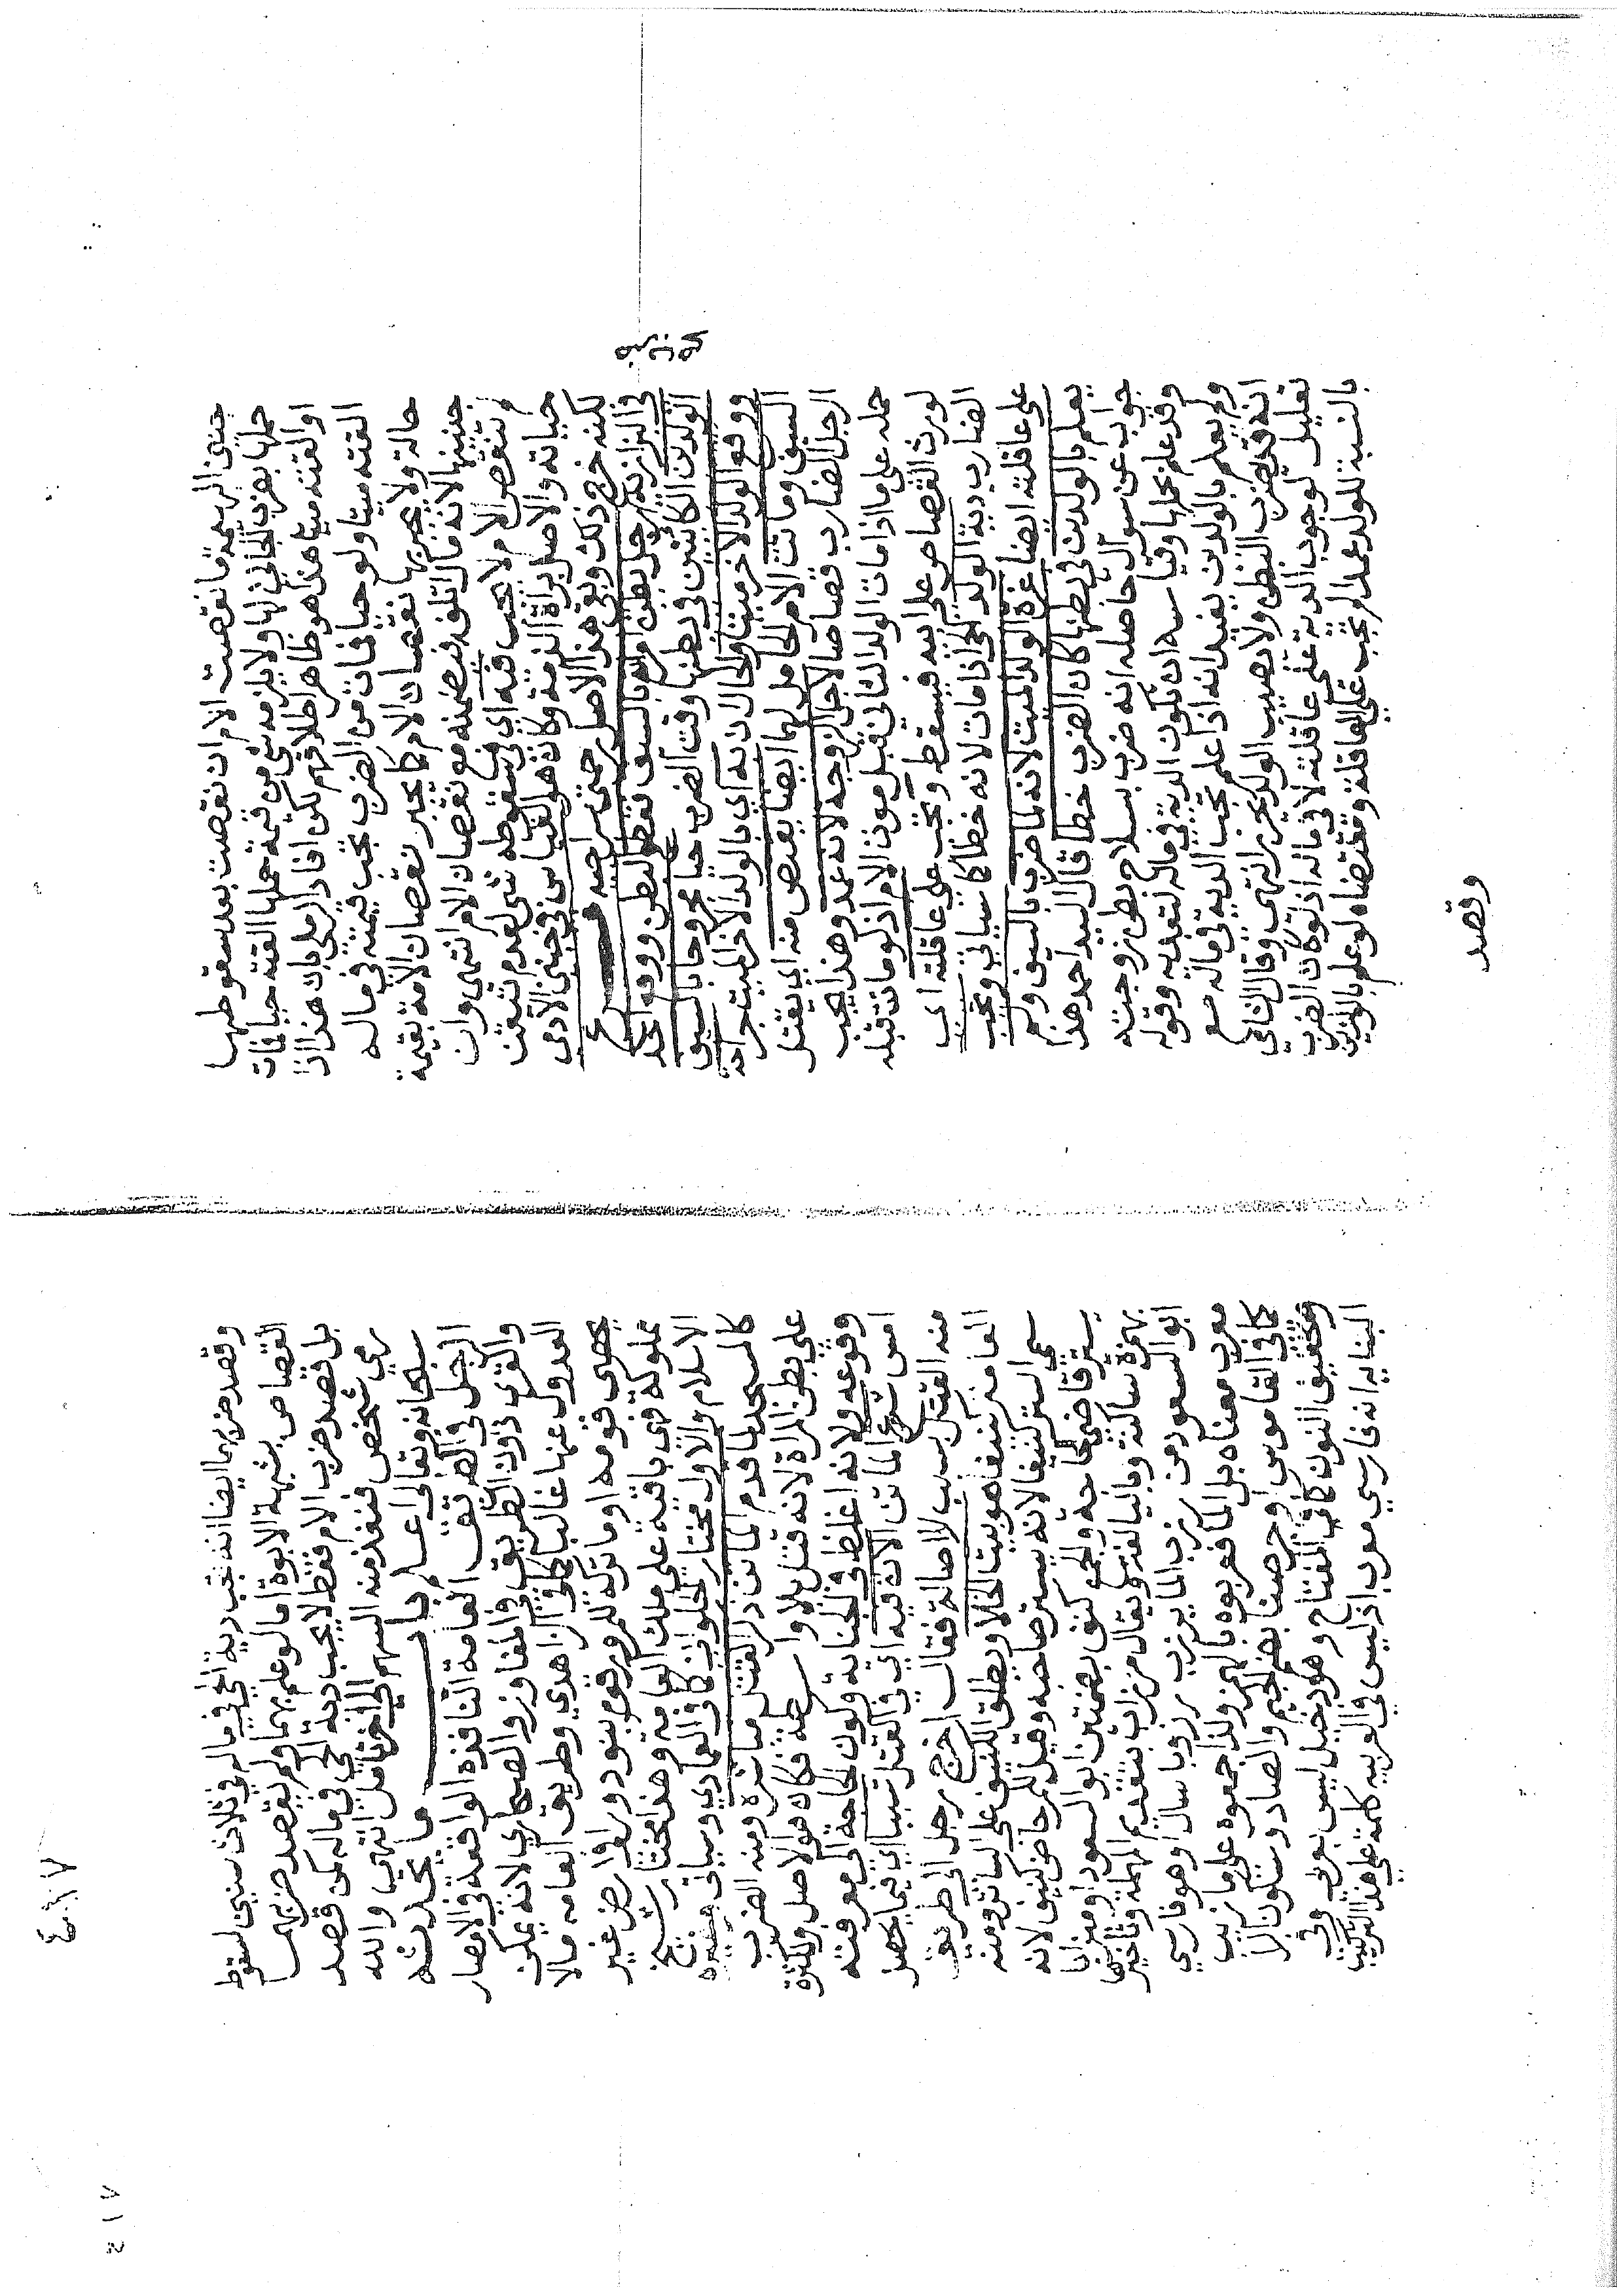 جنين البهيمة ما نقصت الام ان نقصت بعد سقوطها
حملها بضرب الجاني لها ولا يلزمه شي من قيمة حملها القته حيا فمات
او القته ميتا هذا هو ظاهر اطلاقهم لكن افاد الرملي بان هذا اذا
القته ميتا ولو حيا فمات من الضرب تجب قيمته في ماله
حالة ولا يجبر بها نقصان الام كما يجبر نقصان الامة بقيمة
جنينها لانه مال اتلفه فيضمنه مع نقصان الام انتهى وان
لم تنقص الام لا يجب فيه اي في سقوطه شي لعدم تيقن
حياته والاصل براة الذمة وكان هو القياس في جنين الآدمي
لكنه خرج ذلك وبقي هذا الاصل حتى
في البزازية رجل بطن امه بالسيف فقطع البطن ووقع احد
الولدين الكائنين في بطنها وقت الضرب حيا مجروحا بالسيف
ووقع الولد الاخر ميتا والحال ان به اي بالولد الاخر الميت جراحة
السيف وماتت الام الحامل لهما ايضا يقتص منه اي يقتل
الرجل الضارب قصاصا لاجل الزوجة لانه عمد وهذا يجب
حمله على ما اذا مات الولد الثاني قبل موت الام اذ لو ماتت قبله
لورث القصاص على ابيه فيسقط وتجب على عاقلته اي
الضارب دية الولد الحي اذا مات لانه خطا كما سياتي وتجب
على عاقلته ايضا غرة الولد الميت لانه لما ضرب بالسيف ولم
يعلم بالولدين في بطنها كان الضرب خطا قال السيد احمد هذا
جواب عن سوال حاصله انه ضرب بسلاح بطن زوجته
وقد علم بحملها وقياسه ان تكون الدية في ماله لتعمده وقوله
ولم يعلم بالولدين يفيد انه اذا علم تجب الدية في ماله مع
انه قد يضرب البطن ولا يصيب الولد يحرر انتهى وقال الشامي
تعليل لوجوب الدية على عاقلته لا في ماله اذ لو كان الضرب
بالنسبة للولد عمدا لم تجب على العاقلة ومقتضاه لو علم بالولدين
وقصد
وقصد ضربهما ايضا انه تجب دية الحي في ماله في ثلاث سنين لسقوط
القصاص بشبهة الابوة اما لو علم بهما ولم يقصد ضربهما
بل قصد ضرب الام فقط لا يجب دية الحي في ماله كمن قصد
رمي شخص فنفذ منه السهم الى اخر تامل انتهى والله
سبحانه وتعالى اعلم باب ما يحدثه
الرجل في الطريق العامة النافذة الواقعة في الامصار
والقرى دون الطريق في المفاوز والصحاري لانه يمكن
العدول عنها غالبا كما في الزاهدي وطريق العامه مالا
يحصى قومه او ما تركه للمرور قوم بنو دورا في ارض غير
مملوكة فهي باقية على ملك العامه وهذا مختار شيخ
الاسلام والاول مختار الحلواني كما في العمادي وسياتي وغيره
كالمسجد لما قدم الماتن ذكر القتل مباشرة ومنه الضرب
على بطن المراة لانه قتل بلا واسطة فكان هو الاصل ولكثرة
وقوعه ولانه اغلظ في الجناية وكون الحاجة الى معرفته
امس شرع الماتن الان فيه اي في القتل تسببا اي فيما يحصل
منه القتل بسبب لا اصالة فقال اخرج رجل الى طريق
العامة كنيفا هو بيت الخلا ويطلق الكنيف على الساتر ومنه
سمي الترس كنيفا لانه يستر صاحبه وقيل للمرحاض كنيف لانه
يستر قاضي الحاجة والجمع كنف بضمتين ابو السعود او ميزابا
بهمزة ساكنة وباليا لغة ويقال مزراب بتقديم المهملة وتاخيرها
ابو السعود من زرب الما يزرب زروبا سال او هو فارسي
معرب معناه بل الما فعربوه بالهمز ولذا جمعوه على مازيب
كما في القاموس او جرصنا بضم الجيم والصاد وسكون الرا
وتخفيف النون كما في المفتاح وهو دخيل ليس بعربي وفي
البنايه انه فارسي معرب اذ ليس في العربيه كلمة على هذا التركيب